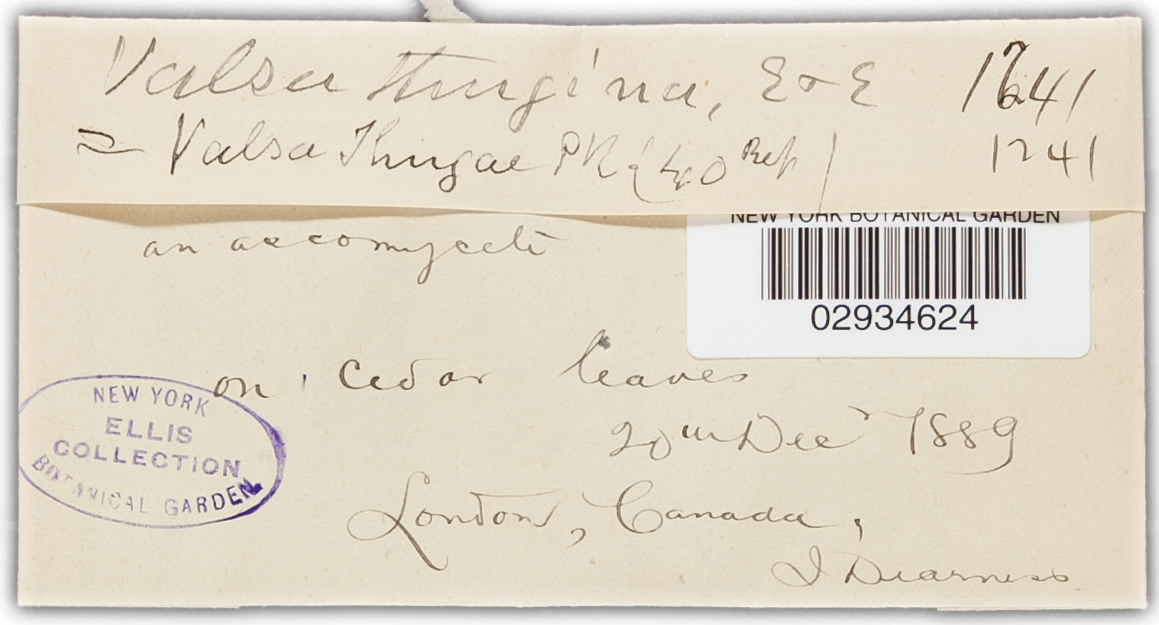 Valsa thugina, E & E 1641
= Valsa Thugae PK (40 Rep) 1241
NEW YORK BOTANICAL GARDEN
02934624
an ascomycete
on cedar leaves
20th Dec 1889
London, Canada,
J Dearness
NEW YORK
ELLIS
COLLECTION
BOTANICAL GARDEN